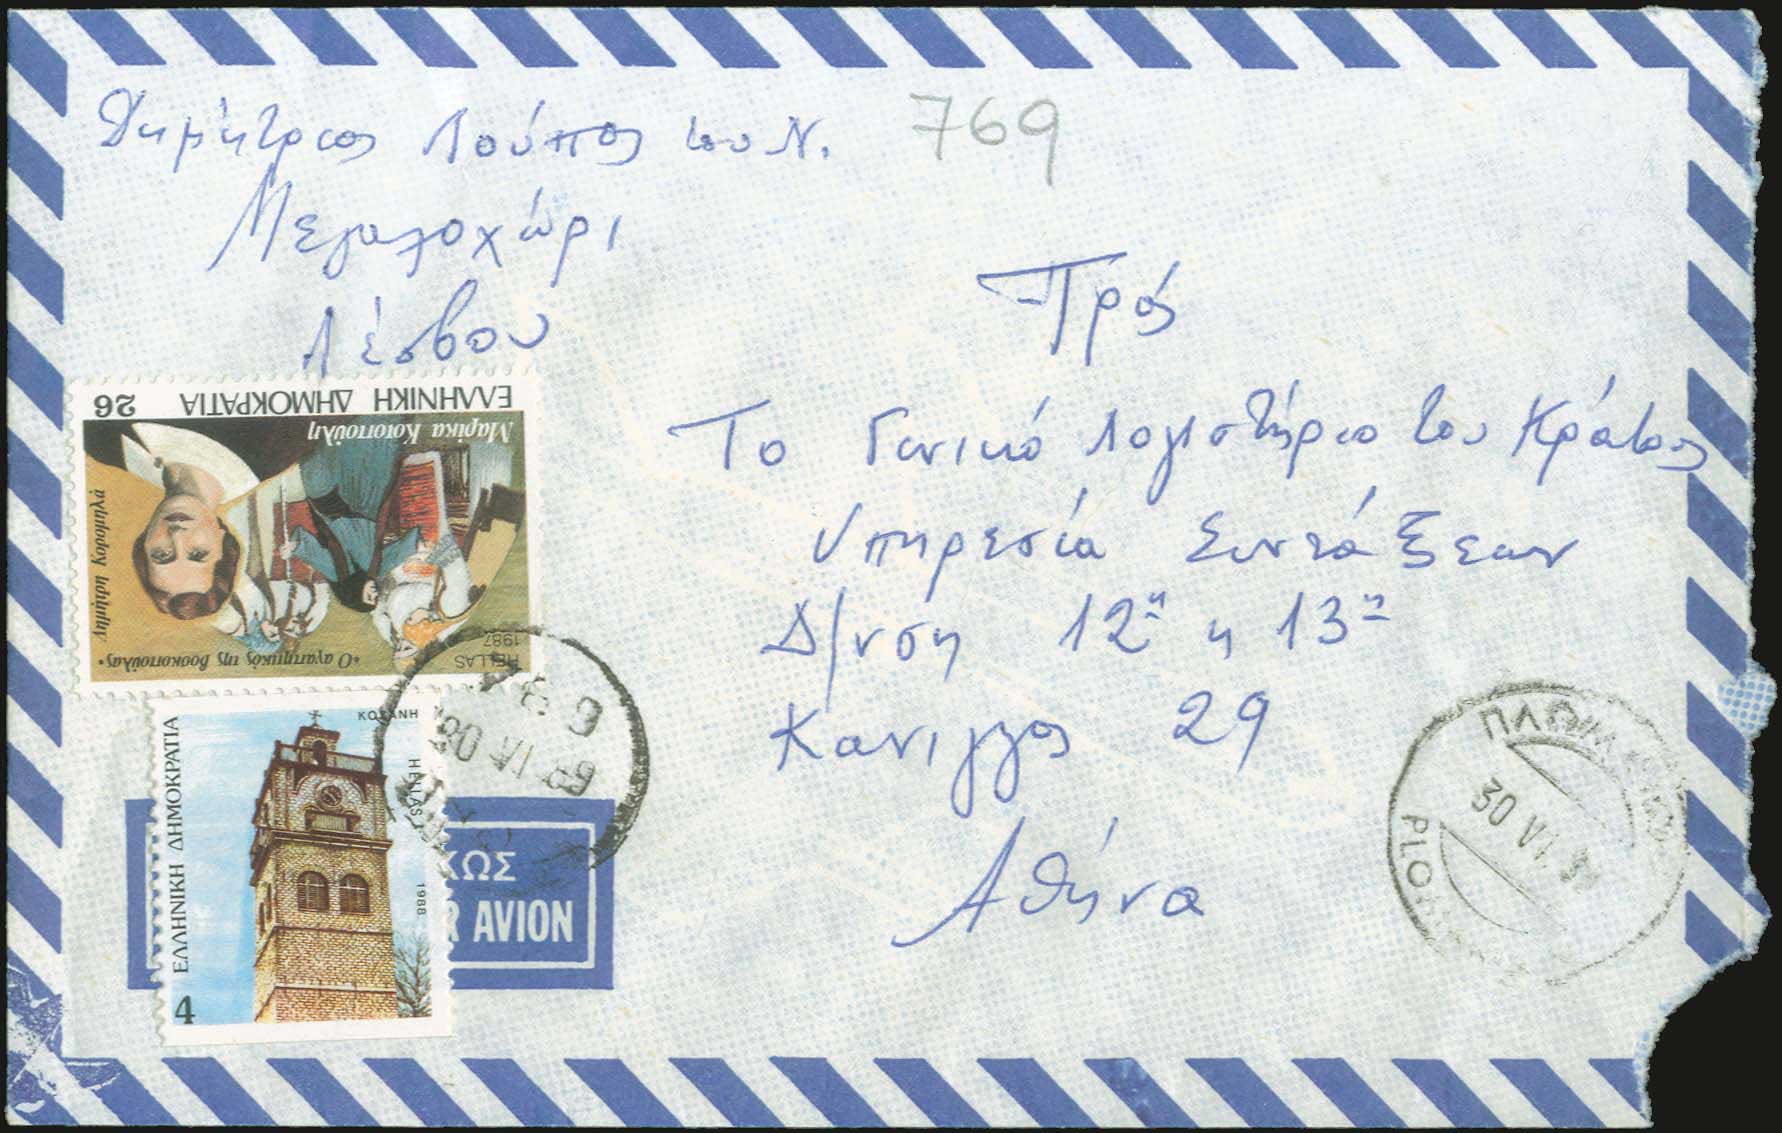 Δημήτριος Λούπος του Ν. 769
Μεγαλοχώρι
Λέσβου
Πρός
Το Γενικό Λογιστήριο του Κράτους
Υπηρεσία Συντάξεων
Δ/νση 12η η 13η
Κανιγγος 29
Αθήνα
ΕΛΛΗΝΙΚΗ ΔΗΜΟΚΡΑΤΙΑ 26
Μαρίκα Κοτοπούλη
Δημήτρη Κορομηλά
«Ο αγαπητικός της βοσκοπούλας»
HELLAS
1987
ΚΟΖΑΝΗ
HELLAS
1988
ΕΛΛΗΝΙΚΗ ΔΗΜΟΚΡΑΤΙΑ
4
ΚΩΣ
R AVION
30 VI
30 VI